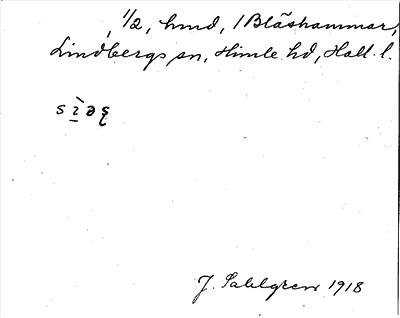 , 1/2, hmd, 1 Blåshammar,
Lindbergs sn, Himle hd, Hall. l.
J. Sahlgren 1918